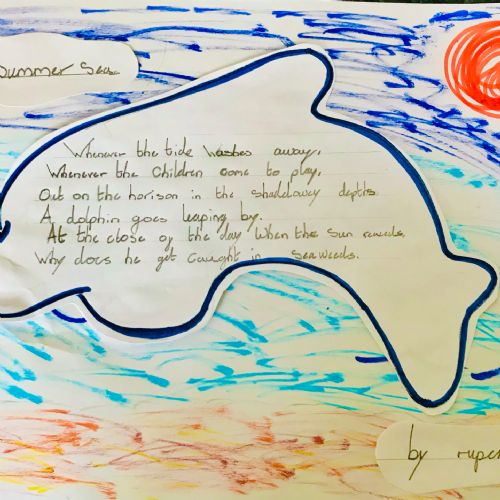 Summer Seas
Whenever the tide washes away,
Whenever the children come to play,
Out on the horison in the shaddowy depths
A dolphin goes leaping by.
At the close of the day when the sun
Why does he get caught in seaweeds.
by